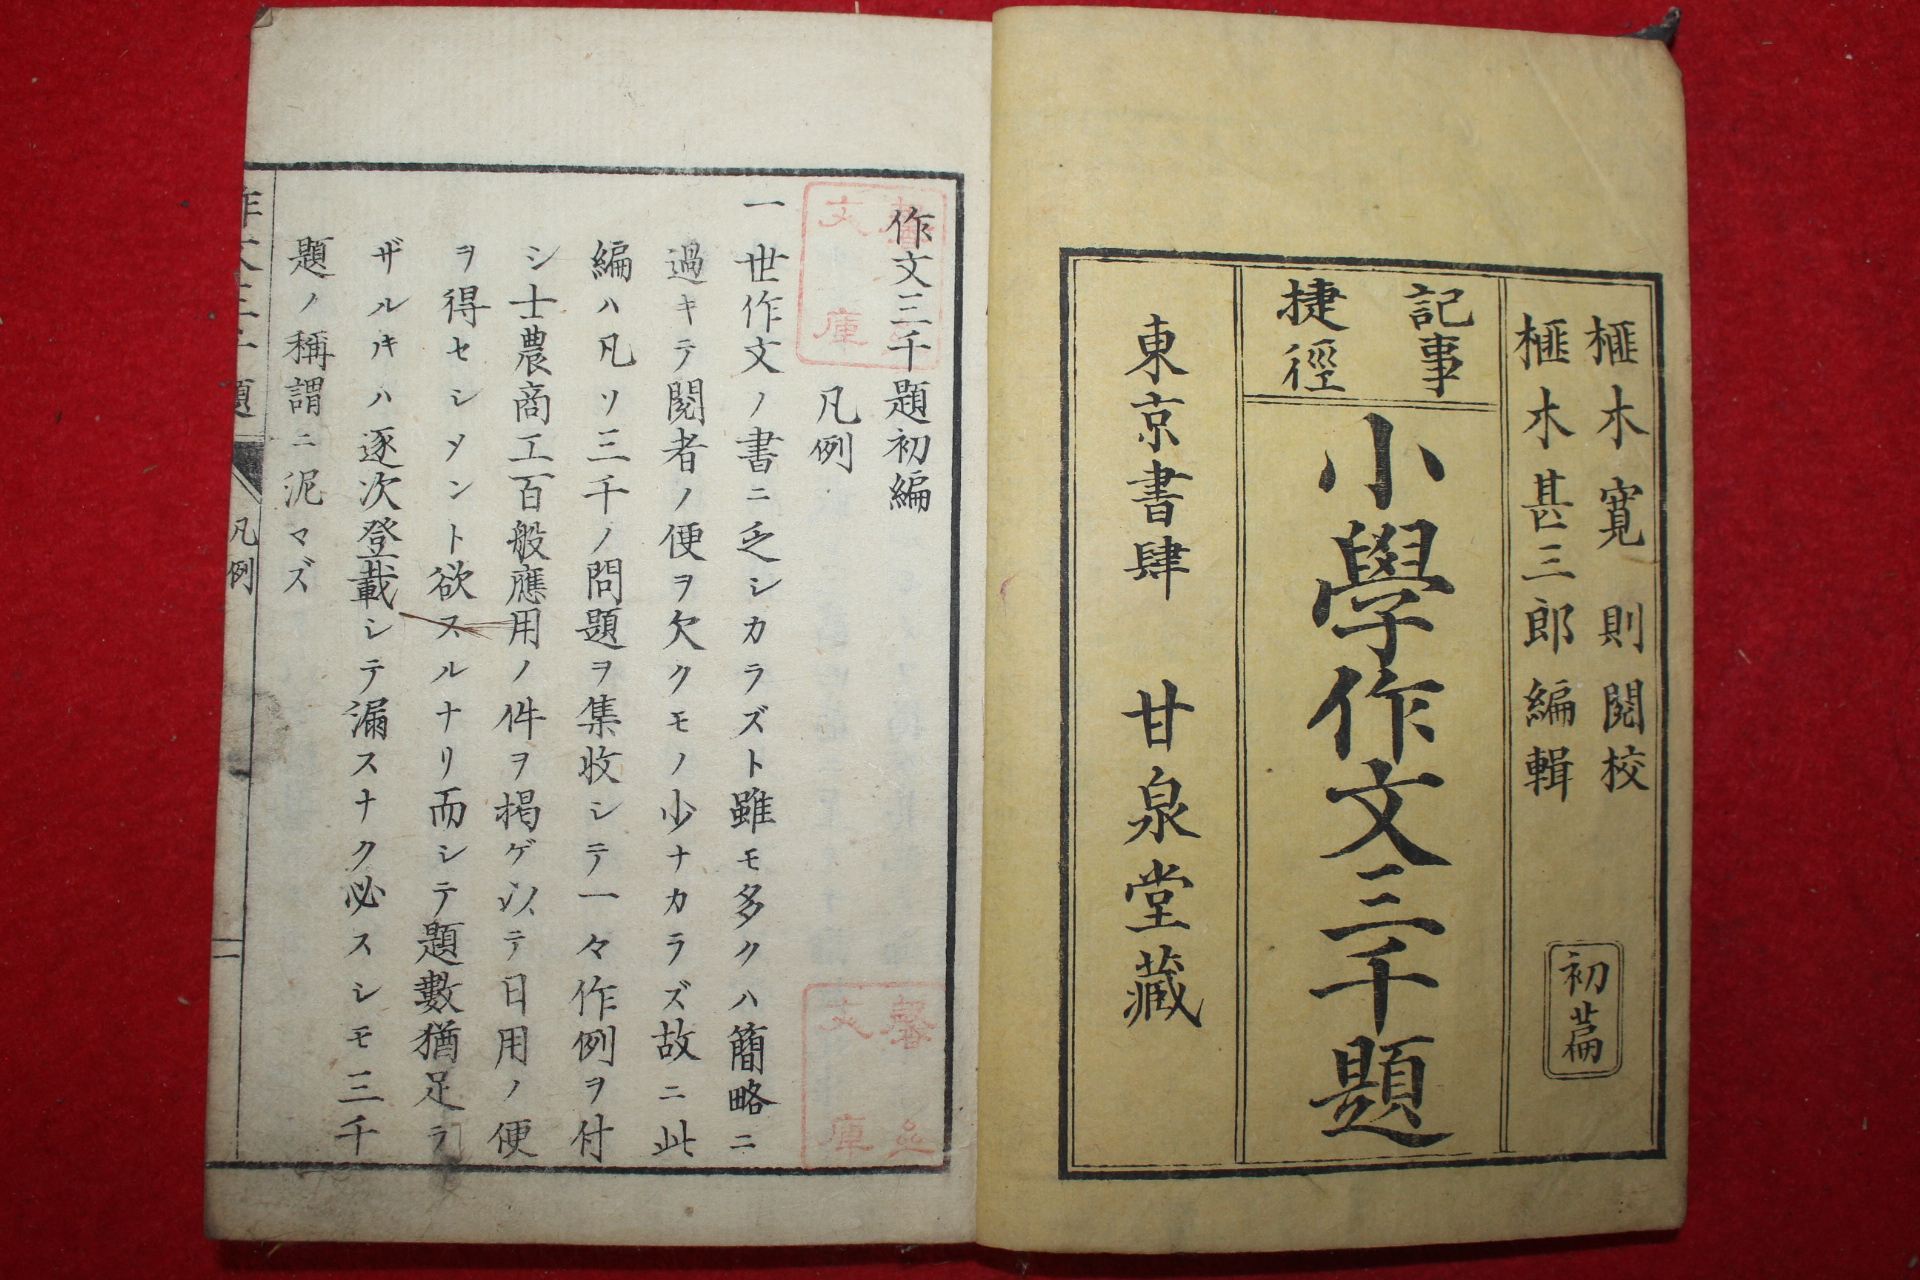 榧木寛則閲校
榧木甚三郎編輯
初篇
記事
捷徑
小學作文三千題
東京書肆 甘泉堂藏
作文三千題初編
凡例
一世作文ノ書ニ乏シカラズト雖モ多クハ簡略ニ
過キテ閲者ノ便ヲ欠クモノ少ナカラズ故ニ此
編ハ凡ソ三千ノ問題ヲ集收シテ一々作例ヲ付
シ士農商工百般應用ノ件ヲ掲ゲ以テ日用ノ便
ヲ得セシメント欲スルナリ而シテ題數猶足ラ
ザルトキハ逐次登載シテ漏スナク必スシモ三千
題ノ稱謂ニ泥マズ
作文三千題
凡例
一
文庫
文庫